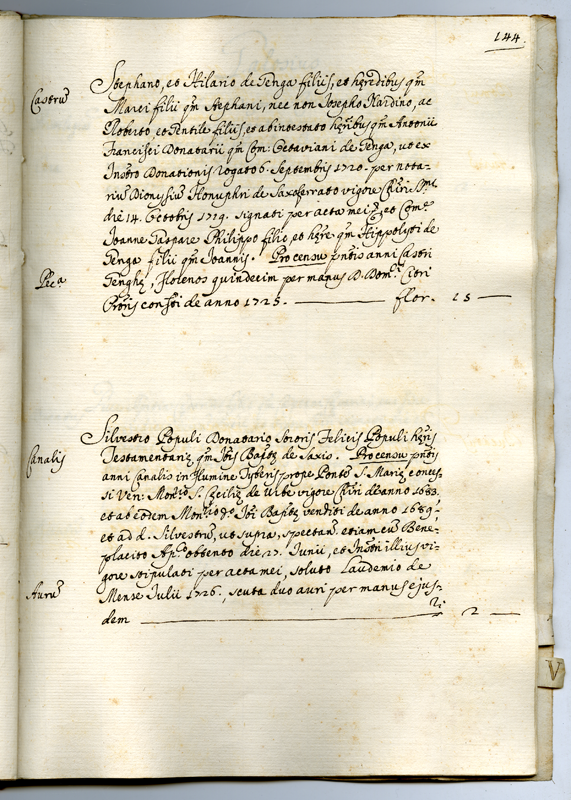 144.
Castrũ
Stephano, et Hilario de Tenga filiis, et hęredibus qm̃
Marci filii qm̃ Stephani, nec non Josepho Nardino, ac
Roberto et Gentile filiis, et ab intestato hęribus qm̃ Antonii
Francisci Donatarii qm̃ Com: Octaviani de Tenga, ut ex
Instro Donationis rogato 6. Septembris 1720. per nota-
riũ Dionysiũ Honuphri de Saxoferrato vigore
die 14. Octobris 1719. signati per acta mei et Com.e
Joanne Gaspare Philippo filio, et hęre qm̃ Hippolyti de
Tenga filii qm̃ Joannis. Pro censu pntis anni Castri
Pec.a
Tenghę, Florenos quindecim per manus D. Dom.ci Ciri
de anno 1725. flor. 15
Silvestro Populi Donatario Sororis Felicis Populi hęris
Canalis
Testamentarię qm̃ Jõis Bapt.ę de Saxis. Pro censu pntis
anni Canalis in Flumine Tyberis prope Pontẽ S. Marię conces-
si Ven: Mon.rio S. Cęcilię de Urbe vigore de anno 1683.
et ab eodem Mon.rio d.o Jõi Bapt.ę venditi de anno 1689.
et ad d. Silvestrũ, ut supra, spectan. etiam cũ Bene-
placito Ap.co obtento die 27. Junii, et Instri illius vi-
gore stipulati per acta mei, soluto Laudemio de
Aurũ
Mense Julii 1726., scuta duo auri per manus ejus-
dem 2